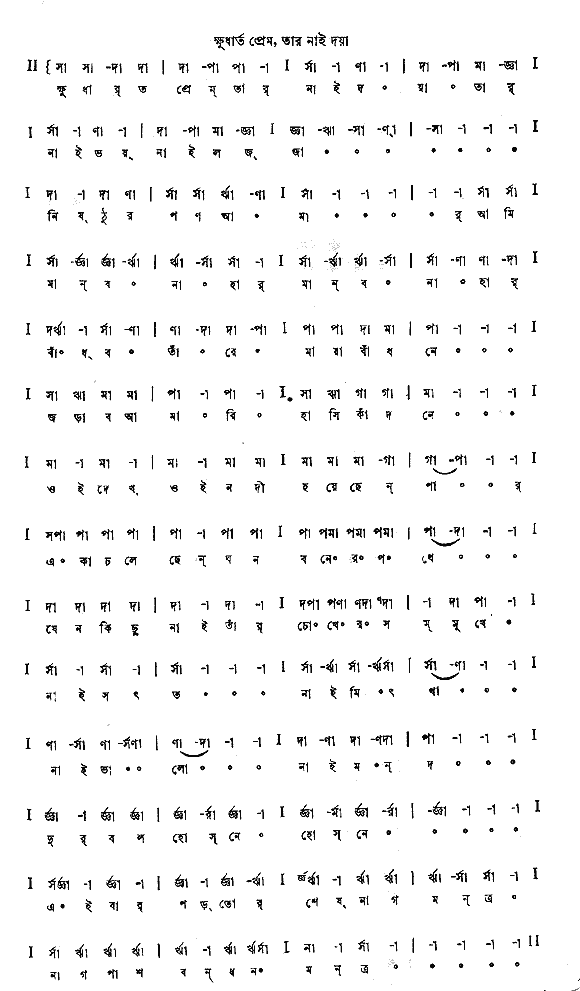 ক্ষুধার্ত প্রেম, তার নাই দয়া
II {সা সা -দা দা | দা -পা পা -া I র্সা -া ণা -া | দা -পা মা -জ্ঞা I
ক্ষু ধা র্ ত প্রে ম্ তা র্ না ই দ ০ য়া ০ তা র্
I র্সা -া ণা -া | দা -পা মা -জ্ঞা I জ্ঞা -ঋা -সা -ণ্া | -সা -া -া -া I
না ই ভ য়্ না ই ল জ্ জা ০ ০ ০ ০ ০ ০ ০
I দা -া দা ণা | র্সা র্সা র্ঋা -ণা I র্সা -া -া -া | -া -া র্সা র্সা I
নি ষ্ ঠু র প ণ আ ০ মা ০ ০ ০ ০ র্ আ মি
I র্সা -র্জ্ঞা র্জ্ঞা -র্ঋা | র্ঋা -র্সা র্সা -া I র্সা -র্ঋা র্ঋা -র্সা | র্সা -ণা ণা -দা I
মা ন্ ব ০ না ০ হা র্ মা ন্ ব ০ না ০ হা র্
I দর্ঋা -া র্সা -ণা | ণা -দা দা -পা I পা পা দা মা | পা -া -া -া I
বাঁ০ ধ্ ব ০ তাঁ ০ রে ০ মা য়া বাঁ ধ নে ০ ০ ০
I সা ঋা মা মা | পা -া পা -া I সা ঋা গা গা | মা -া -া -া I
জ ড়া ব আ মা ০ রি ০ হা সি কাঁ দ নে ০ ০ ০
I মা -া মা -া | মা -া মা মা I মা মা মা -গা | গা -পা -া -া I
ও ই দে খ্ ও ই ন দী হ য়ে ছে ন্ পা ০ ০ র্
I সপা পা পা পা | পা -া পা পা I পা পমা পমা পমা | পা -দা -া -া I
এ০ কা চ লে ছে ন্ ঘ ন ব নে০ র০ প০ থে ০ ০ ০
I দা দা দা দা | দা -া দা -া I দপা পণা ণদা দা | -া দা পা -া I
যে ন কি ছু না ই তাঁ র্ চো০ খে০ র০ স ম্ মু খে ০
I র্সা -া র্সা -া | র্সা -া -া -া I র্সা -র্ঋা র্সা -র্ঋর্সা | র্সা -ণা -া -া I
না ই স ৎ ত ০ ০ ০ না ই মি ০ৎ থা ০ ০ ০
I ণা -র্সা ণা -র্সণা | ণা -দা -া -া I দা -ণা দা -ণদা | পা -া -া -া I
না ই ভা ০০ লো ০ ০ ০ না ই ম ন্ দ ০ ০ ০
I র্জ্ঞা -া র্জ্ঞা র্জ্ঞা | র্জ্ঞা -র্রা র্জ্ঞা -া I র্জ্ঞা -র্মা র্জ্ঞা -র্রা | -র্জ্ঞা -া -া -া I
দু র্ ব ল হো স্ নে ০ হো স্ নে ০ ০ ০ ০ ০
I র্সর্জ্ঞা -া র্জ্ঞা -া | র্জ্ঞা -া র্জ্ঞা -র্ঋা I র্ঋা -া র্ঋা র্ঋা | র্ঋা -র্সা র্সা -া I
এ০ ই বা র্ প ড়্ তো র্ শে ষ্ না গ ম ন্ ত্র ০
I র্সা র্ঋা র্ঋা র্ঋা | র্ঋা -া র্ঋা র্ঋর্সা I না -া র্সা -া | -া -া -া -া II
না গ পা শ ব ন্ ধ ন০ ম ন্ ত্র ০ ০ ০ ০ ০